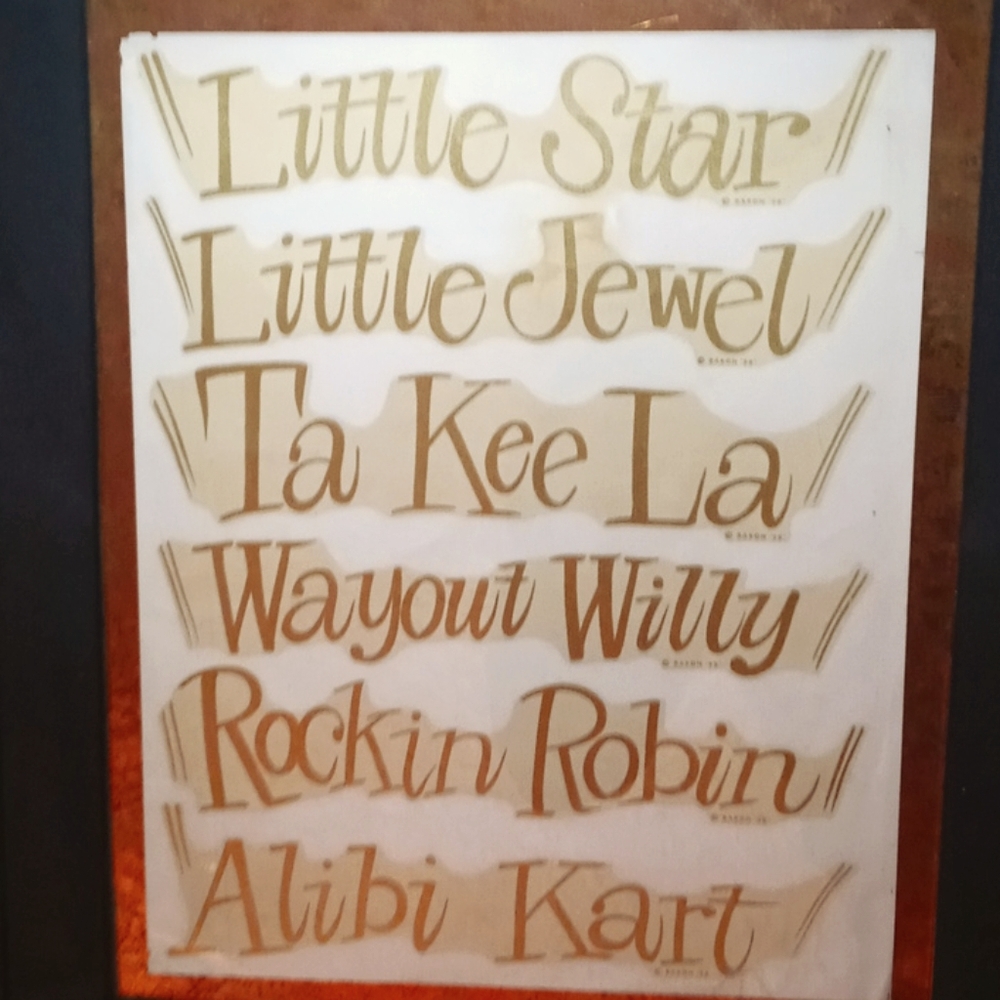 Little Star
Little Jewel
Ta Kee La
Wayout Willy
Rockin Robin
Alibi Kart